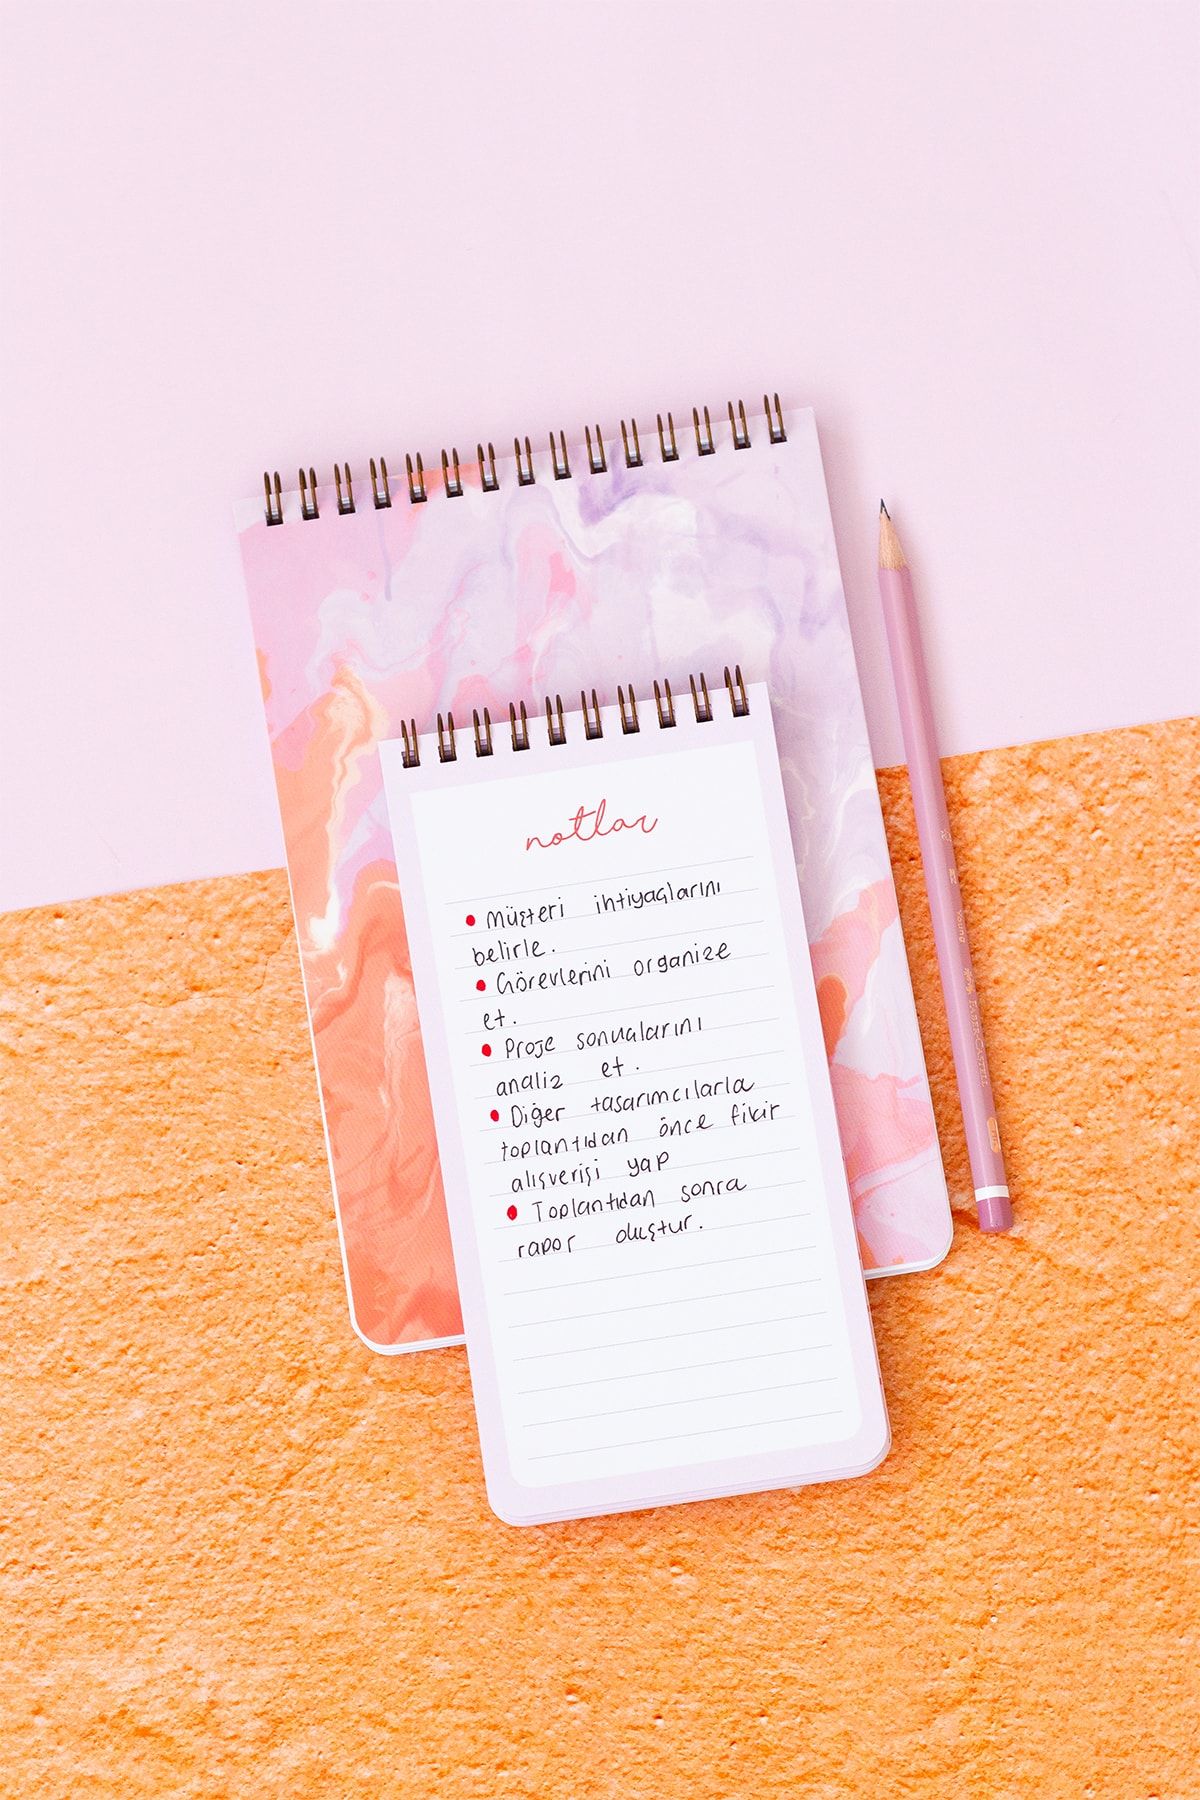 notlar
• Müşteri ihtiyaçlarını
belirle.
• Görevlerini organize
et.
• Proje sonuçlarını
analiz et.
• Diğer tasarımcılarla
toplantıdan önce fikir
alışverişi yap
• Toplantıdan sonra
rapor oluştur.
FABER-CASTELL